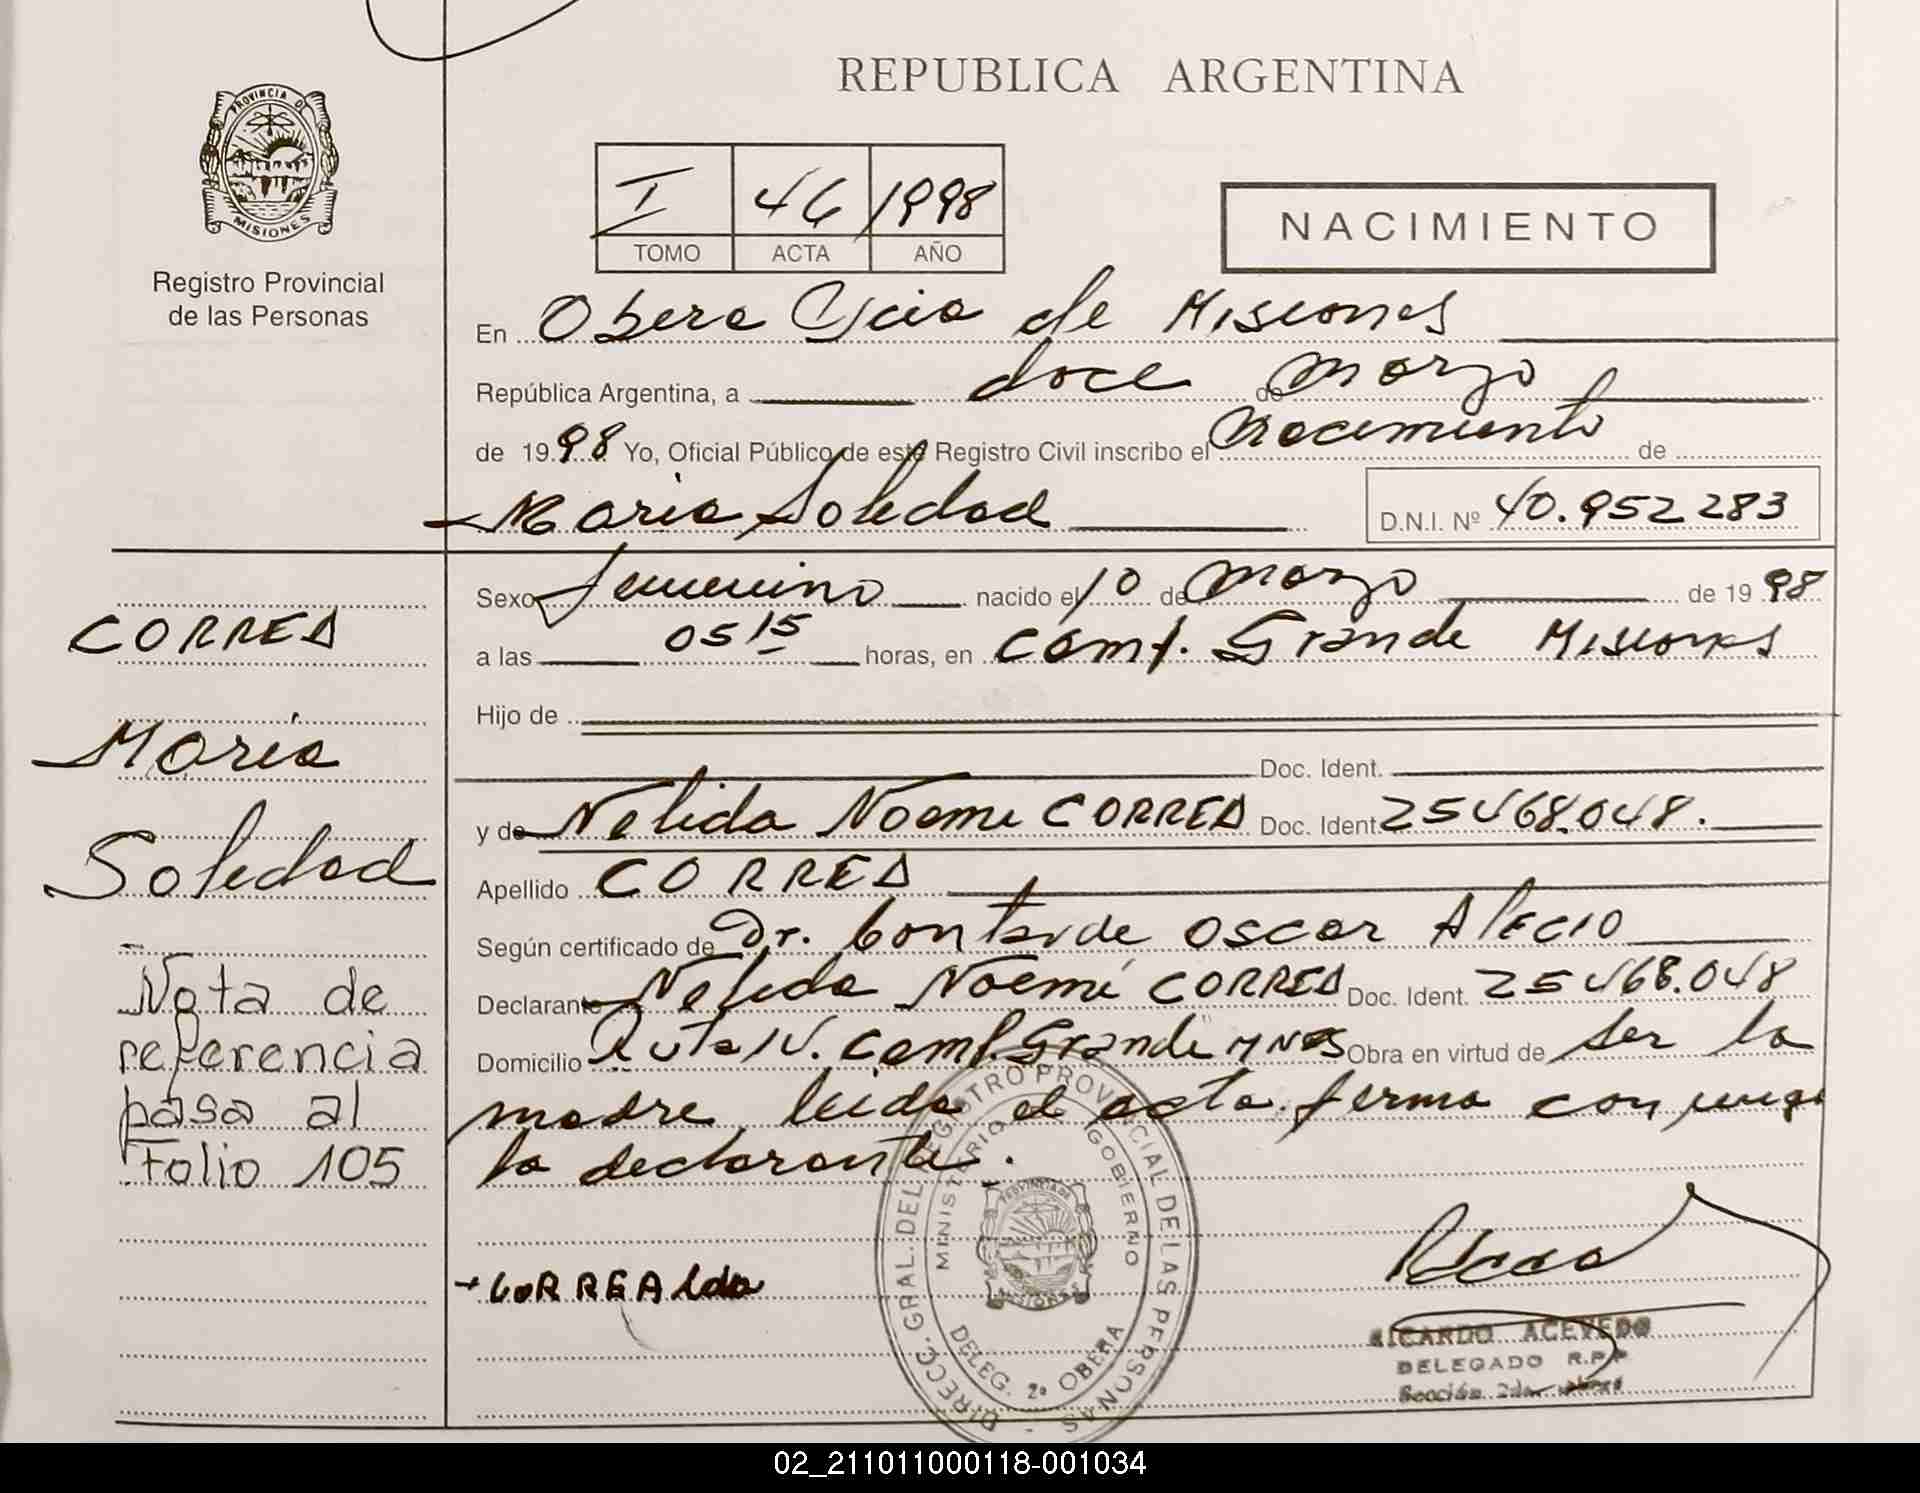 REPUBLICA ARGENTINA
PROVINCIA DE
MISIONES
Registro Provincial
de las Personas
I 46 1998
TOMO ACTA AÑO
NACIMIENTO
En Obera Pcia de Misiones
República Argentina, a doce de Marzo
de 1998 Yo, Oficial Público de este Registro Civil inscribo el Nacimiento de
Maria Soledad D.N.I. Nº 40.952283
Sexo femenino nacido el 10 de Marzo de 1998
a las 0515 horas, en Camp. Grande Misiones
Hijo de
Doc. Ident.
y de Nelida Noemi CORREA Doc. Ident. 25468.048.
Apellido CORREA
Según certificado de Dr. Oscar Alecio
Declarante Nelida Noemí CORREA Doc. Ident. 25468.048
Domicilio Ruta Camp. Grande Mnes Obra en virtud de ser la
madre leida el acta firma conmigo
la declarante.
CORREA
Maria
Soledad
Nota de
referencia
pasa al
Folio 105
CORREA
DIRECC. GRAL. DEL REGISTRO PROVINCIAL DE LAS PERSONAS
MINISTERIO GOBIERNO
PROVINCIA DE
MISIONES
DELEG. 2ª OBERA
RICARDO ACEVEDO
DELEGADO R.P.P.
Sección 2da.
02_211011000118-001034